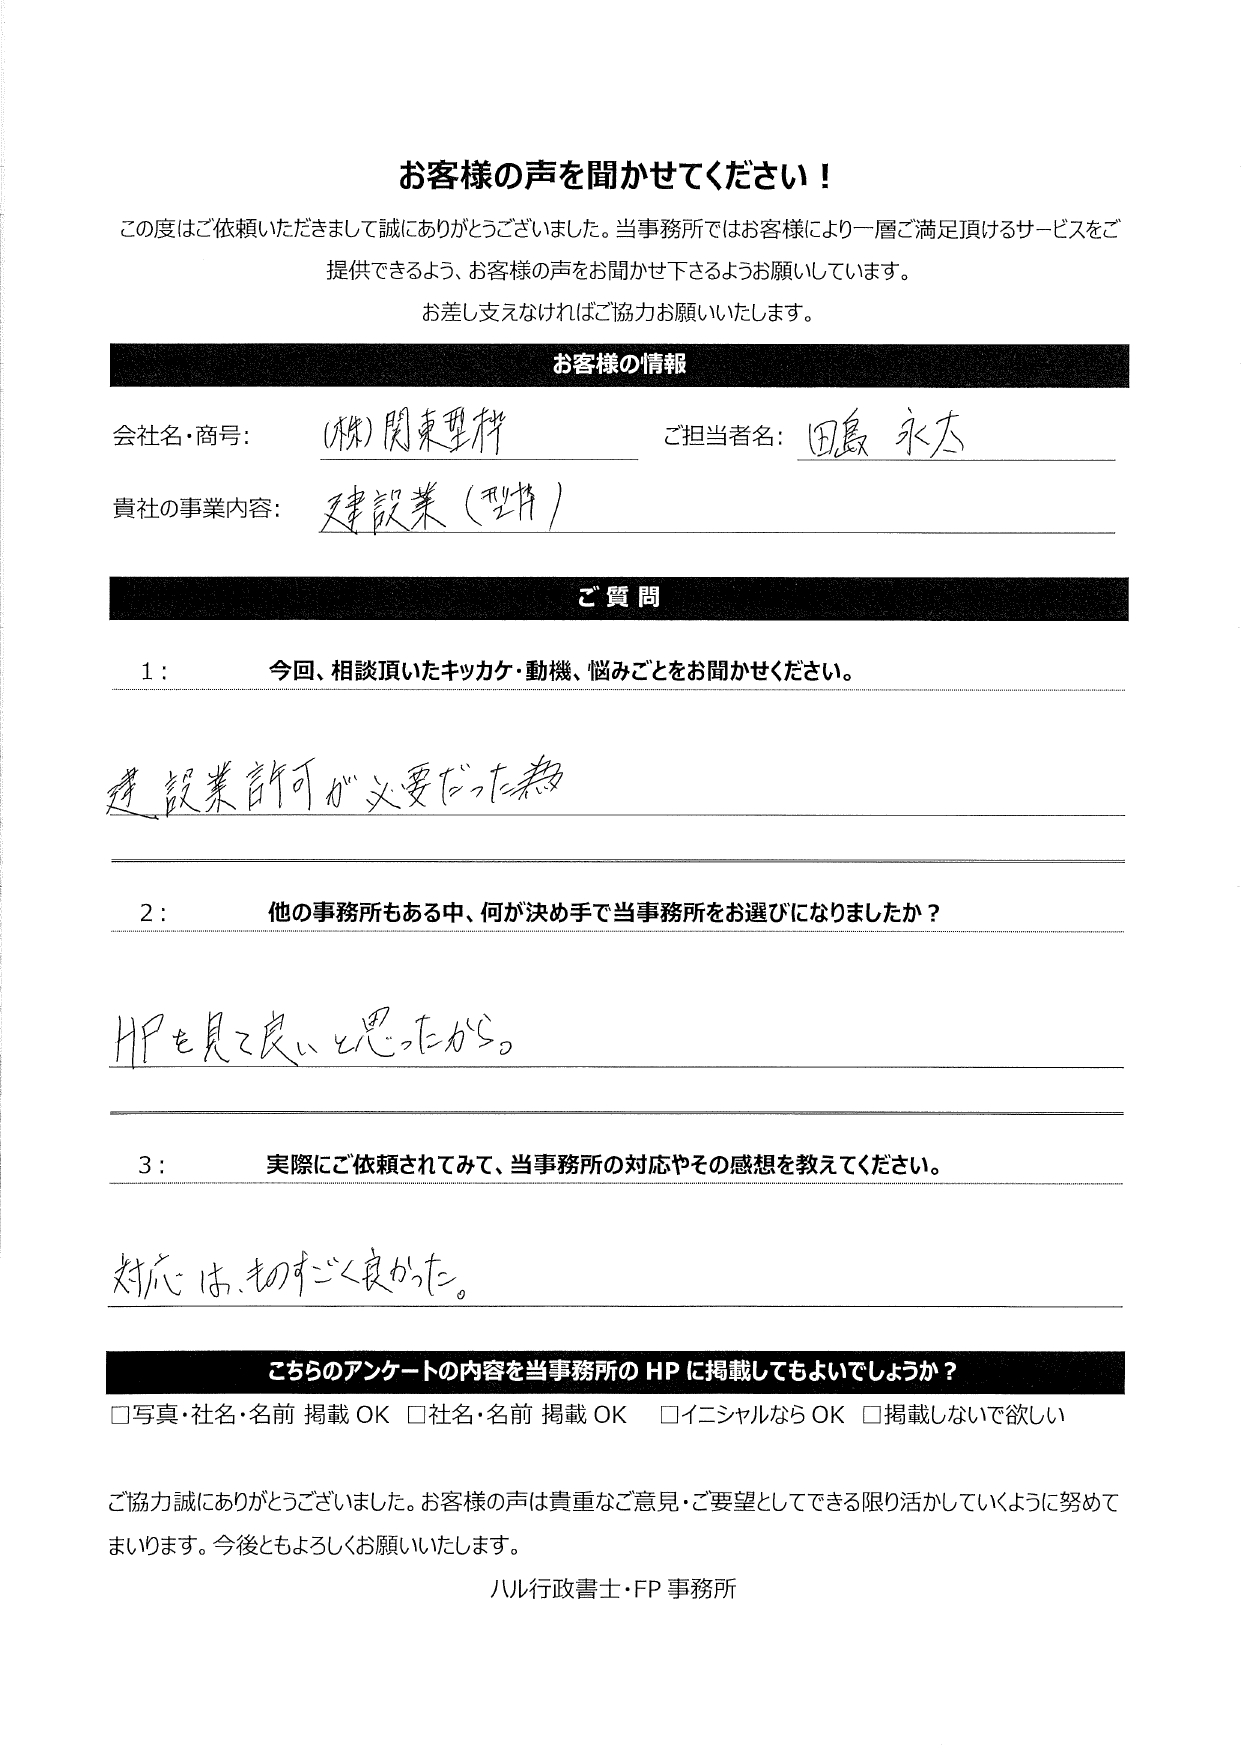 お客様の声を聞かせてください！
この度はご依頼いただきまして誠にありがとうございました。当事務所ではお客様により一層ご満足頂けるサービスをご
提供できるよう、お客様の声をお聞かせ下さるようお願いしています。
お差し支えなければご協力お願いいたします。
お客様の情報
会社名・商号： (株)関東型枠 ご担当者名： 田島 永太
貴社の事業内容： 建設業(型枠)
ご 質 問
1： 今回、相談頂いたキッカケ・動機、悩みごとをお聞かせください。
建設業許可が必要だった為
2： 他の事務所もある中、何が決め手で当事務所をお選びになりましたか？
HPを見て良いと思ったから。
3： 実際にご依頼されてみて、当事務所の対応やその感想を教えてください。
対応は、ものすごく良かった。
こちらのアンケートの内容を当事務所の HP に掲載してもよいでしょうか？
□写真・社名・名前 掲載 OK □社名・名前 掲載 OK □イニシャルなら OK □掲載しないで欲しい
ご協力誠にありがとうございました。お客様の声は貴重なご意見・ご要望としてできる限り活かしていくように努めて
まいります。今後ともよろしくお願いいたします。
ハル行政書士・FP 事務所